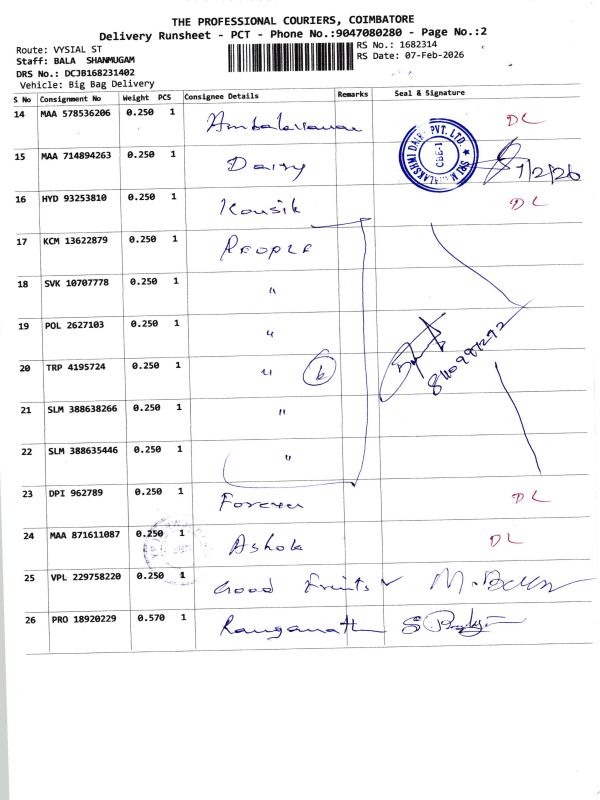 THE PROFESSIONAL COURIERS, COIMBATORE
Delivery Runsheet - PCT - Phone No.:9047080280 - Page No.:2
Route: VYSIAL ST
RS No.: 1682314
Staff: BALA SHANMUGAM
RS Date: 07-Feb-2026
DRS No.: DCJB168231402
Vehicle: Big Bag Delivery
S No Consignment No Weight PCS Consignee Details Remarks Seal & Signature
14 MAA 578536206 0.250 1 DL
15 MAA 714894263 0.250 1 Dairy 7/2/26
SRI MAHALAKSHMI DAIRY PVT. LTD. CBE-1
16 HYD 93253810 0.250 1 Kousik DL
17 KCM 13622879 0.250 1 PEOPLE
18 SVK 10707778 0.250 1 "
19 POL 2627103 0.250 1 "
20 TRP 4195724 0.250 1 " 6
21 SLM 388638266 0.250 1 "
22 SLM 388635446 0.250 1 "
23 DPI 962789 0.250 1 Forever DL
24 MAA 871611087 0.250 1 Ashok DL
25 VPL 229758220 0.250 1 Good Fruits
26 PRO 18920229 0.570 1 Ranganath